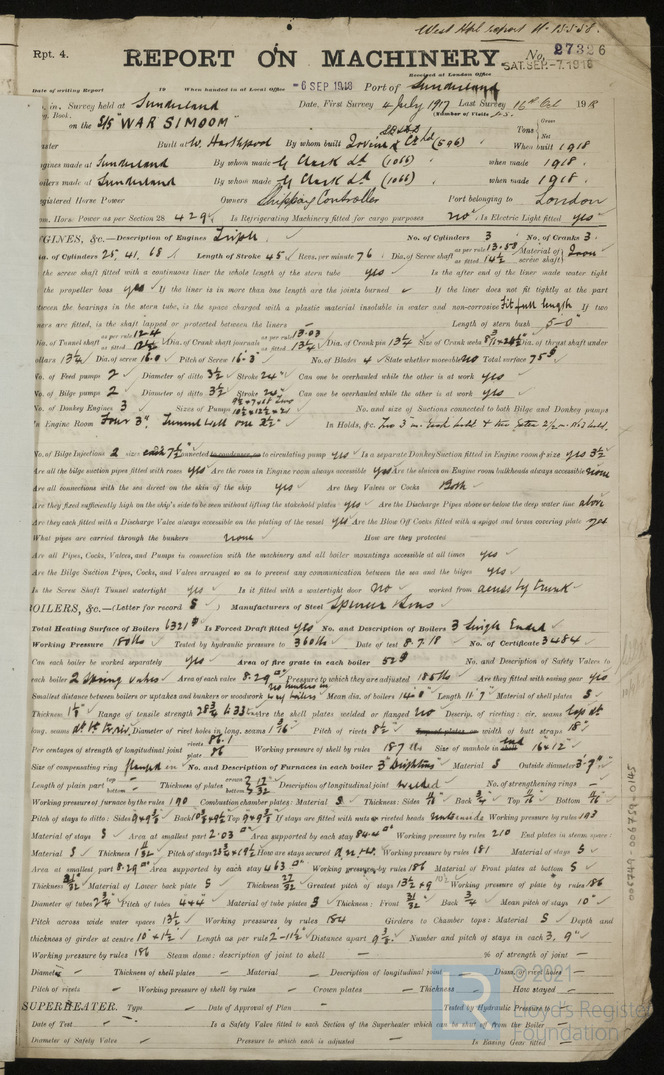 West Hpl report 11. 13.5.58.
Rpt. 4.
REPORT ON MACHINERY
No. 27326
Received at London Office
SAT. SEP. -7. 1918
Date of writing Report 19 When handed in at Local Office -6 SEP. 1918 Port of Sunderland
in. Survey held at Sunderland Date, First Survey 4 July 1917 Last Survey 1918
Book. (Number of Visits
on the S/S "WAR SIMOOM" Tons Gross Net
aster Built at W. Hartlepool By whom built Irvine's Ld (596) When built 1918
ngines made at Sunderland By whom made G Clark Ld (1066) when made 1918
oilers made at Sunderland By whom made G Clark Ld (1066) when made 1918
egistered Horse Power Owners Shipping Controller Port belonging to London
om. Horse Power as per Section 28 429 Is Refrigerating Machinery fitted for cargo purposes no Is Electric Light fitted yes
NGINES, &c.—Description of Engines Triple No. of Cylinders 3 No. of Cranks 3
ia. of Cylinders 25. 41. 68 Length of Stroke 45 Revs. per minute 76 Dia. of Screw shaft as per rule 13.58 as fitted 14½ Material of screw shaft Iron
the screw shaft fitted with a continuous liner the whole length of the stern tube yes Is the after end of the liner made water tight
the propeller boss yes If the liner is in more than one length are the joints burned If the liner does not fit tightly at the part
tween the bearings in the stern tube, is the space charged with a plastic material insoluble in water and non-corrosive Fit full length If two
ners are fitted, is the shaft lapped or protected between the liners — Length of stern bush 5-0"
Dia. of Tunnel shaft as per rule 12.4 as fitted Dia. of Crank shaft journals as per rule 13.03 as fitted 13¼ Dia. of Crank pin 13¼ Size of Crank webs Dia. of thrust shaft under
ollars 13¼ Dia. of screw 16.0 Pitch of Screw 16.3 No. of Blades 4 State whether moveable no Total surface 75
No. of Feed pumps 2 Diameter of ditto 3½ Stroke 24" Can one be overhauled while the other is at work yes
No. of Bilge pumps 2 Diameter of ditto 3½ Stroke 24" Can one be overhauled while the other is at work yes
No. of Donkey Engines 3 Sizes of Pumps No. and size of Suctions connected to both Bilge and Donkey pumps
n Engine Room Four 3". Tunnel well one 2½" In Holds, &c. Two 3 in. Each hold
No. of Bilge Injections 2 sizes Connected to condenser or to circulating pump yes Is a separate Donkey Suction fitted in Engine room & size yes 3½
Are all the bilge suction pipes fitted with roses yes Are the roses in Engine room always accessible yes Are the sluices on Engine room bulkheads always accessible none
Are all connections with the sea direct on the skin of the ship yes Are they Valves or Cocks Both
Are they fixed sufficiently high on the ship's side to be seen without lifting the stokehold plates yes Are the Discharge Pipes above or below the deep water line above
Are they each fitted with a Discharge Valve always accessible on the plating of the vessel yes Are the Blow Off Cocks fitted with a spigot and brass covering plate yes
What pipes are carried through the bunkers none How are they protected
Are all Pipes, Cocks, Valves, and Pumps in connection with the machinery and all boiler mountings accessible at all times yes
Are the Bilge Suction Pipes, Cocks, and Valves arranged so as to prevent any communication between the sea and the bilges yes
Is the Screw Shaft Tunnel watertight yes Is it fitted with a watertight door no worked from access by trunk
BOILERS, &c.—(Letter for record S ) Manufacturers of Steel Spencer & Sons
Total Heating Surface of Boilers 6321 Is Forced Draft fitted yes No. and Description of Boilers 3 Single Ended
Working Pressure 180 lbs Tested by hydraulic pressure to 360 lbs Date of test 8.7.18 No. of Certificate 3484
Can each boiler be worked separately yes Area of fire grate in each boiler 52 No. and Description of Safety Valves to
each boiler 2 Spring valves Area of each valve 8.29 Pressure to which they are adjusted 185 lbs Are they fitted with easing gear yes
Smallest distance between boilers or uptakes and bunkers or woodwork Mean dia. of boilers 14-0" Length 11-7" Material of shell plates S
Thickness 1⅛" Range of tensile strength Are the shell plates welded or flanged no Descrip. of riveting: cir. seams lap dr
long. seams Diameter of rivet holes in long. seams 1 3/16" Pitch of rivets 8½" Lap of plates or width of butt straps 18"
Per centages of strength of longitudinal joint rivets 86.1 plate 86 Working pressure of shell by rules 187 lbs Size of manhole in end 16x12
Size of compensating ring flanged in No. and Description of Furnaces in each boiler 3 Deightons Material S Outside diameter 3-9"
Length of plain part top bottom Thickness of plates crown bottom Description of longitudinal joint welded No. of strengthening rings —
Working pressure of furnace by the rules 190 Combustion chamber plates: Material S Thickness: Sides Back ¾ Top Bottom
Pitch of stays to ditto: Sides Back Top If stays are fitted with nuts or riveted heads nuts inside Working pressure by rules 193
Material of stays S Area at smallest part 2.03 Area supported by each stay Working pressure by rules 210 End plates in steam space:
Material S Thickness Pitch of stays How are stays secured Working pressure by rules 181 Material of stays S
Area at smallest part 8.29 Area supported by each stay 463 Working pressure by rules 186 Material of Front plates at bottom S
Thickness Material of Lower back plate S Thickness 27/32 Greatest pitch of stays 13½ x 9 Working pressure of plate by rules 186
Diameter of tubes 2¾ Pitch of tubes 4x4 Material of tube plates S Thickness: Front 31/32 Back ¾ Mean pitch of stays 10"
Pitch across wide water spaces 13½ Working pressures by rules 184 Girders to Chamber tops: Material S Depth and
thickness of girder at centre 10" x 1½" Length as per rule 2'-11½" Distance apart Number and pitch of stays in each 3, 9"
Working pressure by rules 186 Steam dome: description of joint to shell — % of strength of joint —
Diameter — Thickness of shell plates — Material — Description of longitudinal joint — Diam. of rivet holes —
Pitch of rivets — Working pressure of shell by rules — Crown plates — Thickness — How stayed —
SUPERHEATER. Type — Date of Approval of Plan — Tested by Hydraulic Pressure to —
Date of Test — Is a Safety Valve fitted to each Section of the Superheater which can be shut off from the Boiler —
Diameter of Safety Valve — Pressure to which each is adjusted — Is Easing Gear fitted —
006749-006759-0145
© 2021
Lloyd's Register
Foundation